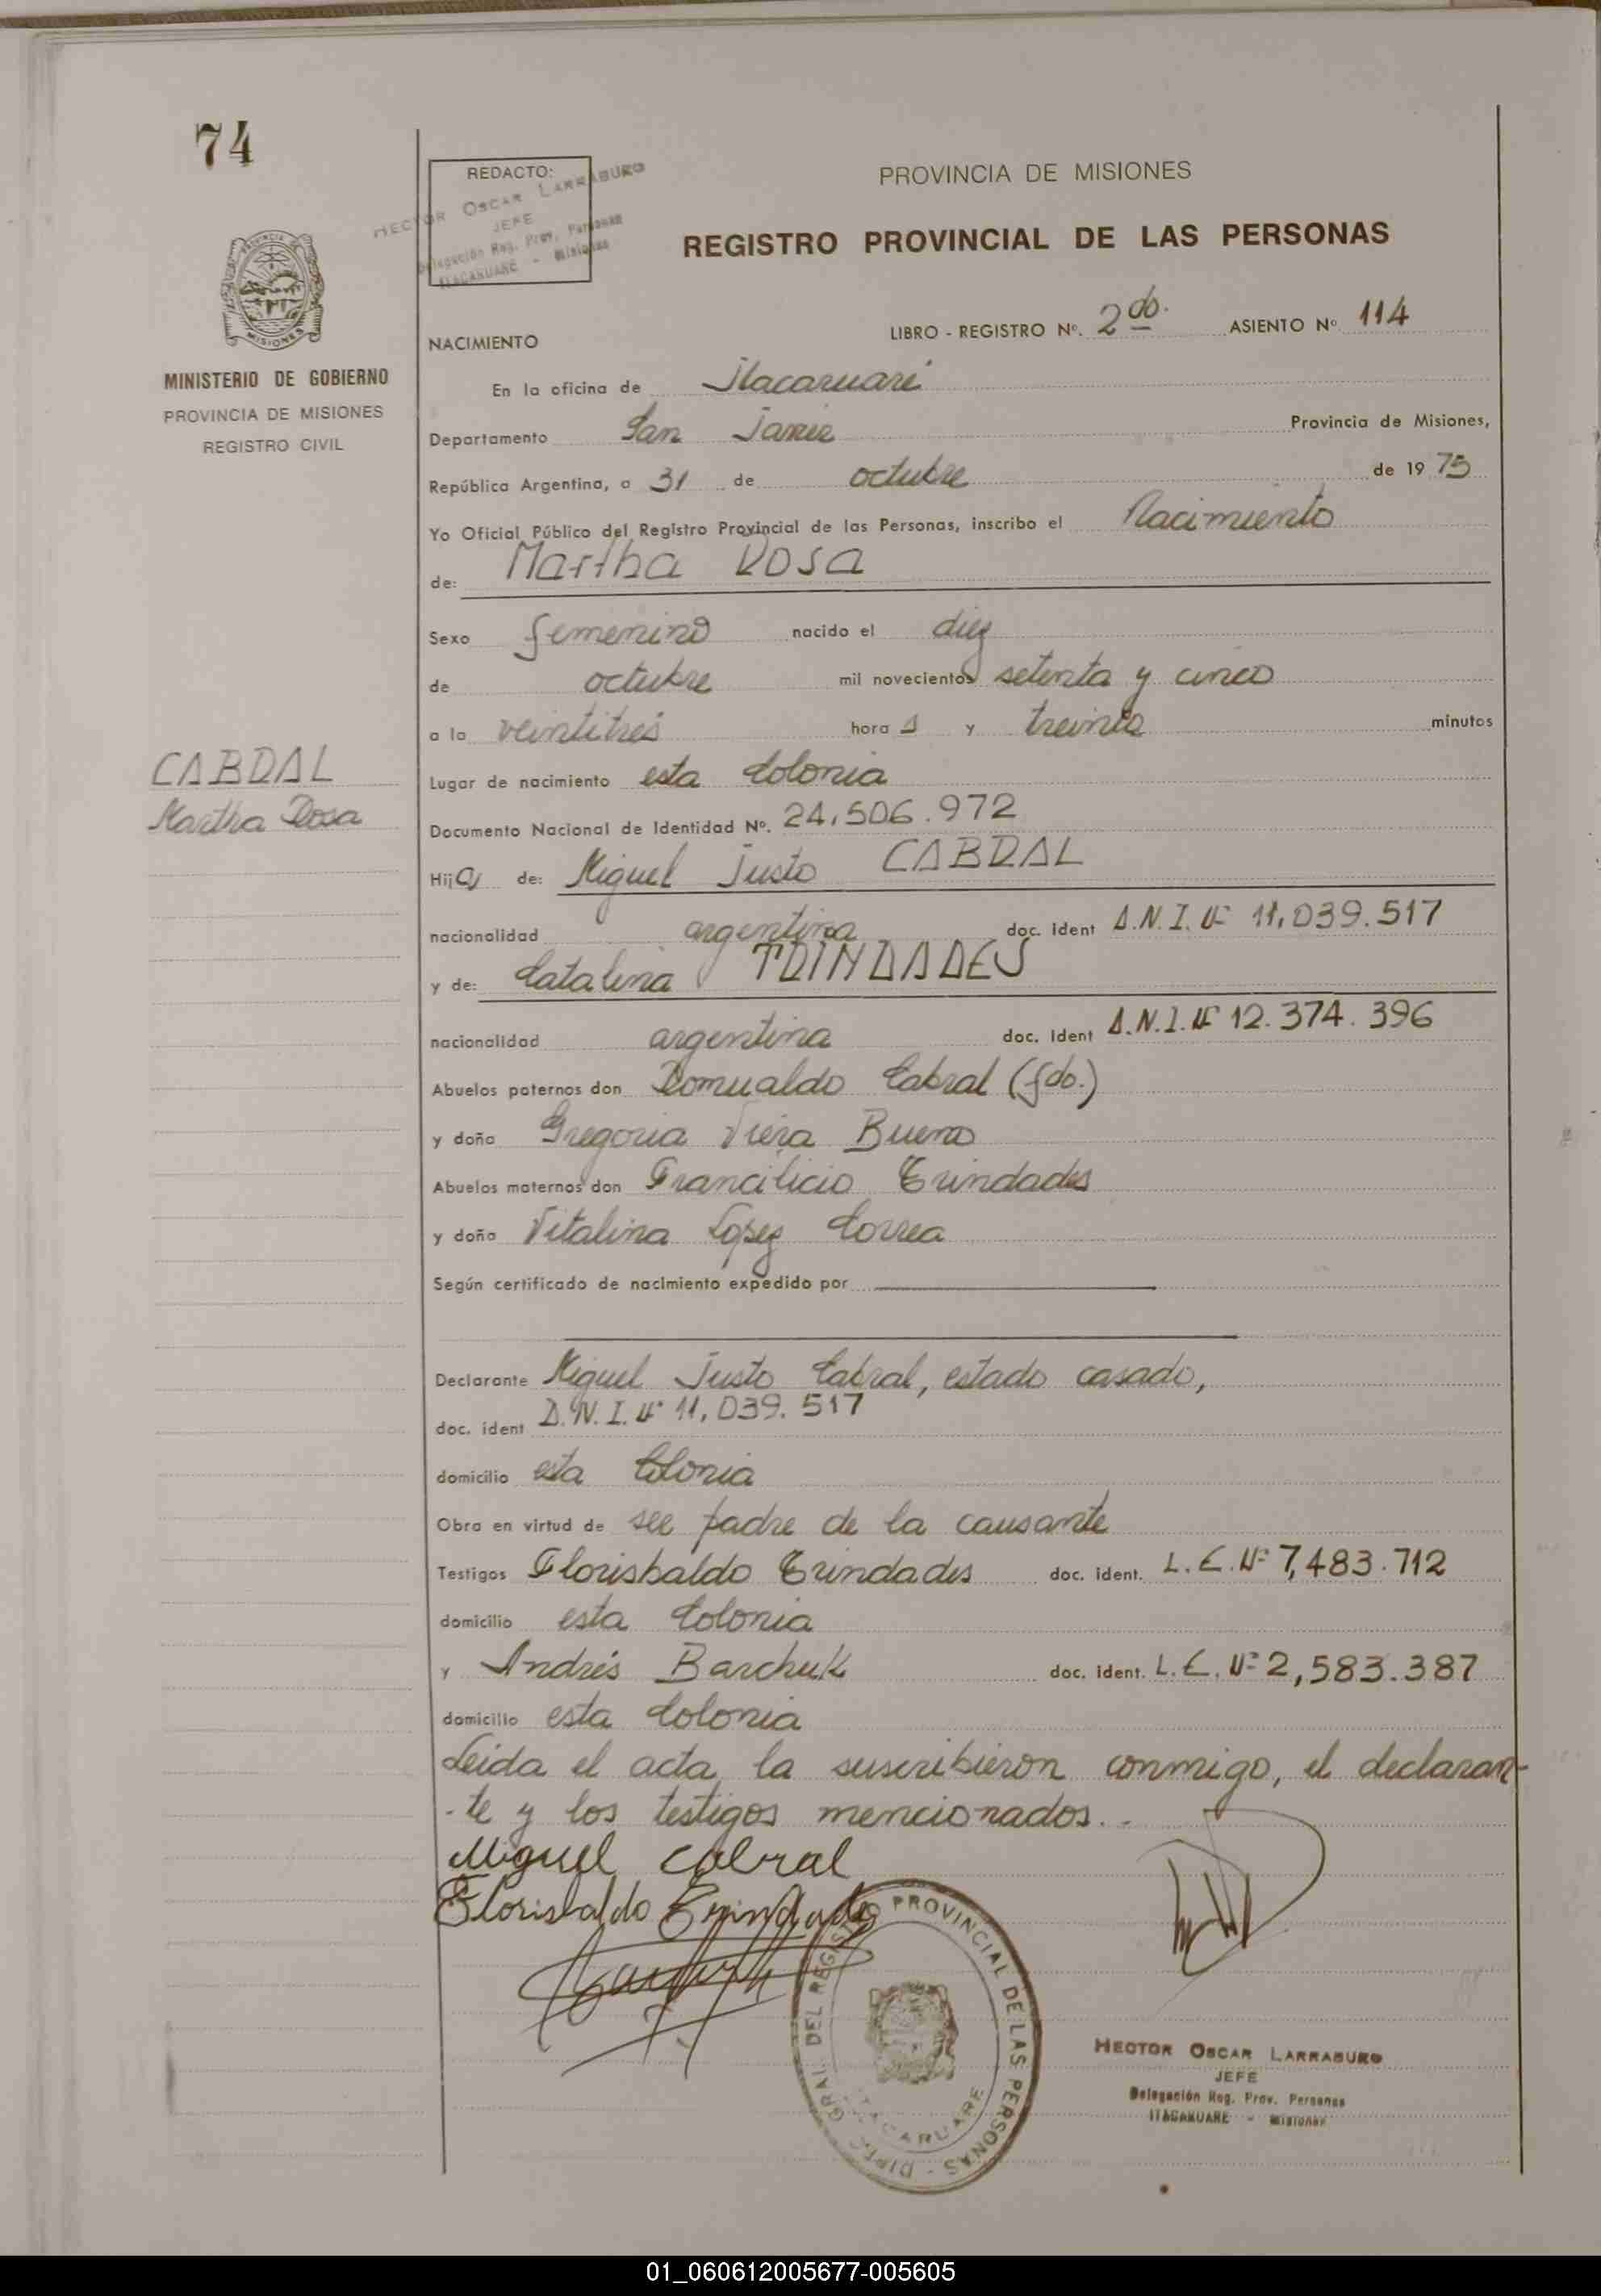 74
REDACTO:
HECTOR OSCAR LARRABURO
JEFE
Delegación Reg. Prov. Personas
ITACARUARE - Misiones
PROVINCIA DE MISIONES
REGISTRO PROVINCIAL DE LAS PERSONAS
PROVINCIA DE
MISIONES
MINISTERIO DE GOBIERNO
PROVINCIA DE MISIONES
REGISTRO CIVIL
NACIMIENTO
LIBRO - REGISTRO Nº. 2do. ASIENTO Nº 114
En la oficina de Itacaruaré
Departamento San Javier Provincia de Misiones,
República Argentina, a 31 de octubre de 1975
Yo Oficial Público del Registro Provincial de las Personas, inscribo el Nacimiento
de: Martha Rosa
Sexo femenino nacido el diez
de octubre mil novecientos setenta y cinco
a la veintitrés hora s y treinta minutos
CABRAL
Martha Rosa
Lugar de nacimiento esta Colonia
Documento Nacional de Identidad Nº. 24.506.972
Hija de: Miguel Justo CABRAL
nacionalidad argentina doc. ident D.N.I. Nº 11.039.517
y de: Catalina TRINDADES
nacionalidad argentina doc. ident D.N.I. Nº 12.374.396
Abuelos paternos don Romualdo Cabral (fdo.)
y doña Gregoria Viera Bueno
Abuelos maternos don Francilicio Trindades
y doña Vitalina Lopez Correa
Según certificado de nacimiento expedido por
Declarante Miguel Justo Cabral, estado casado,
doc. ident D.N.I. Nº 11.039.517
domicilio esta Colonia
Obra en virtud de ser padre de la causante
Testigos Florisbaldo Trindades doc. ident. L.E. Nº 7,483.712
domicilio esta Colonia
y Andrés Barchuk doc. ident. L.E. Nº 2,583.387
domicilio esta Colonia
Leida el acta, la suscribieron conmigo, el declaran-
-te y los testigos mencionados..
Miguel Cabral
Florisbaldo Trindades
DIREC. GRAL. DEL REGISTRO PROVINCIAL DE LAS PERSONAS -
ITACARUARE
HECTOR OSCAR LARRABURO
JEFE
Delegación Reg. Prov. Personas
ITACARUARE - Misiones
01_060612005677-005605